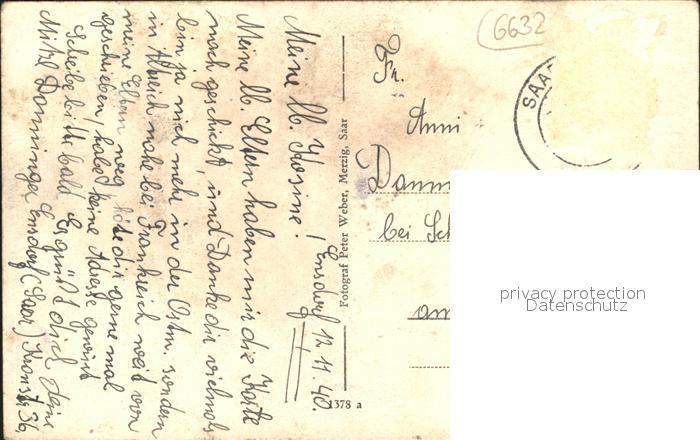 6632
Ensdorf 12.11.40.
Meine lb. Kosine!
Meine lb. Eltern haben mir die Karte
nach geschikt, und Danke dir vielmals
bin ja nich mehr in der Ostm. sondern
in Reich nahe bei Frankreich weit von
meine Eltern weg, dir gerne mal
geschrieben, habe keine Adresse gewust
Schreibe bitte bald Es grüst dich deine
Mitzl Donninger Ensdorf (Saar) Kronstr 36
Fotograf Peter Weber, Merzig, Saar
1378 a
Fr.
Anni
Dann
bei Sch
am
SAA
privacy protection
Datenschutz